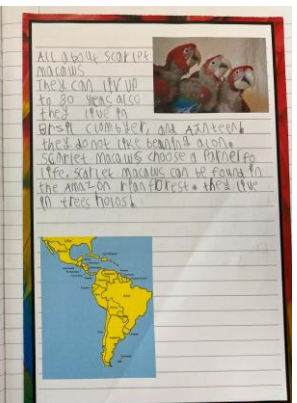 All about scarlet
macaws
They can liv up
to 80 years also
they live in
Brsil clombyer, and
they do not like beaning alon.
Scarlet macaws choose a parner fo
life. Scarlet macaws can be found in
the Amazon rianforest. they live
in trees holos!